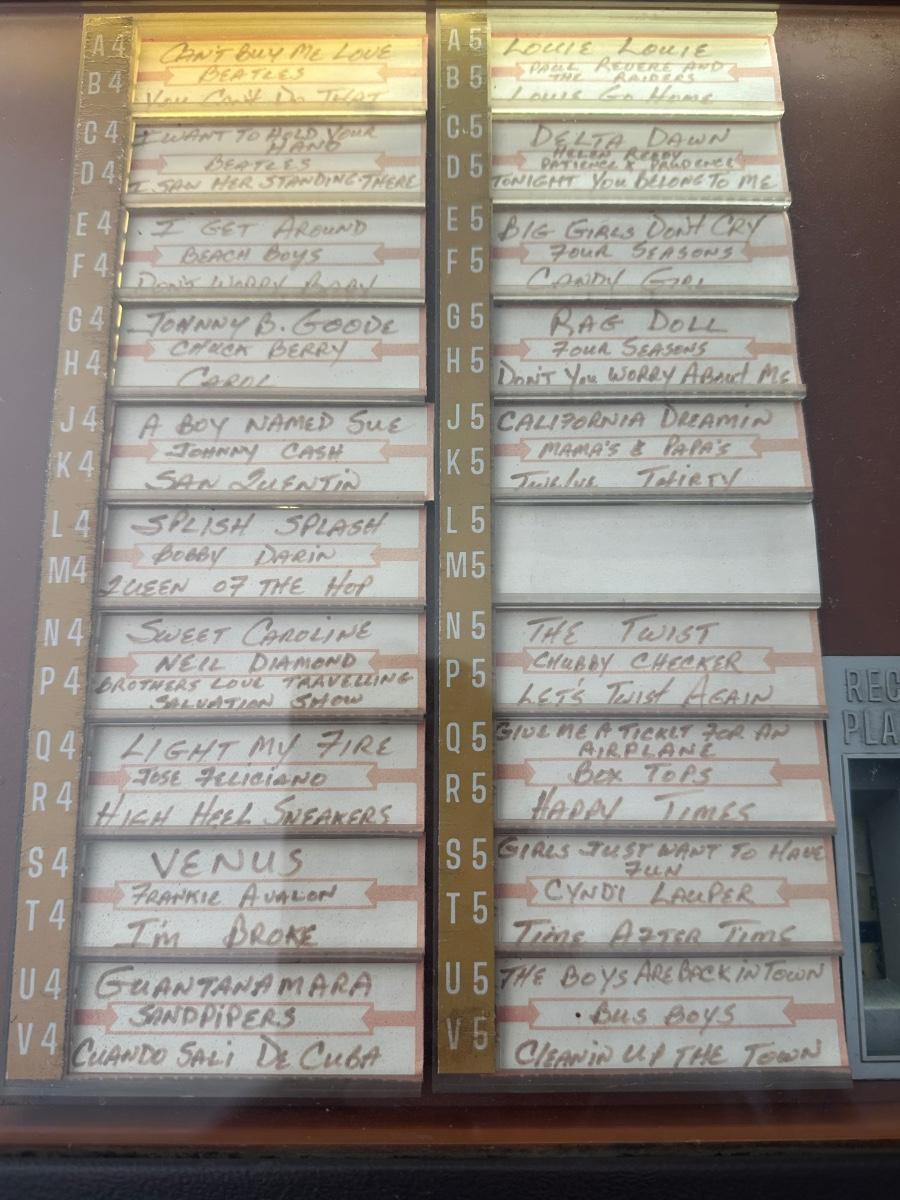 A4
B4
CAN'T BUY ME LOVE
BEATLES
YOU CAN'T DO THAT
C4
D4
I WANT TO HOLD YOUR
HAND
BEATLES
I SAW HER STANDING THERE
E4
F4
I GET AROUND
BEACH BOYS
DON'T WORRY BABY
G4
H4
JOHNNY B. GOODE
CHUCK BERRY
CAROL
J4
K4
A BOY NAMED SUE
JOHNNY CASH
SAN QUENTIN
L4
M4
SPLISH SPLASH
BOBBY DARIN
QUEEN OF THE HOP
N4
P4
SWEET CAROLINE
NEIL DIAMOND
BROTHERS LOVE TRAVELLING
SALVATION SHOW
Q4
R4
LIGHT MY FIRE
JOSE FELICIANO
HIGH HEEL SNEAKERS
S4
T4
VENUS
FRANKIE AVALON
I'M BROKE
U4
V4
GUANTANAMARA
SANDPIPERS
CUANDO SALI DE CUBA
A5
B5
LOUIE LOUIE
PAUL REVERE AND
THE RAIDERS
LOUIE GO HOME
C5
D5
DELTA DAWN
HELEN REDDY
PATIENCE & PRUDENCE
TONIGHT YOU BELONG TO ME
E5
F5
BIG GIRLS DON'T CRY
FOUR SEASONS
CANDY GIRL
G5
H5
RAG DOLL
FOUR SEASONS
DON'T YOU WORRY ABOUT ME
J5
K5
CALIFORNIA DREAMIN
MAMA'S & PAPA'S
TWELVE THIRTY
L5
M5
N5
P5
THE TWIST
CHUBBY CHECKER
LET'S TWIST AGAIN
Q5
R5
GIVE ME A TICKET FOR AN
AIRPLANE
BOX TOPS
HAPPY TIMES
S5
T5
GIRLS JUST WANT TO HAVE
FUN
CYNDI LAUPER
TIME AFTER TIME
U5
V5
THE BOYS ARE BACK IN TOWN
BUS BOYS
CLEANIN UP THE TOWN
REC
PLA